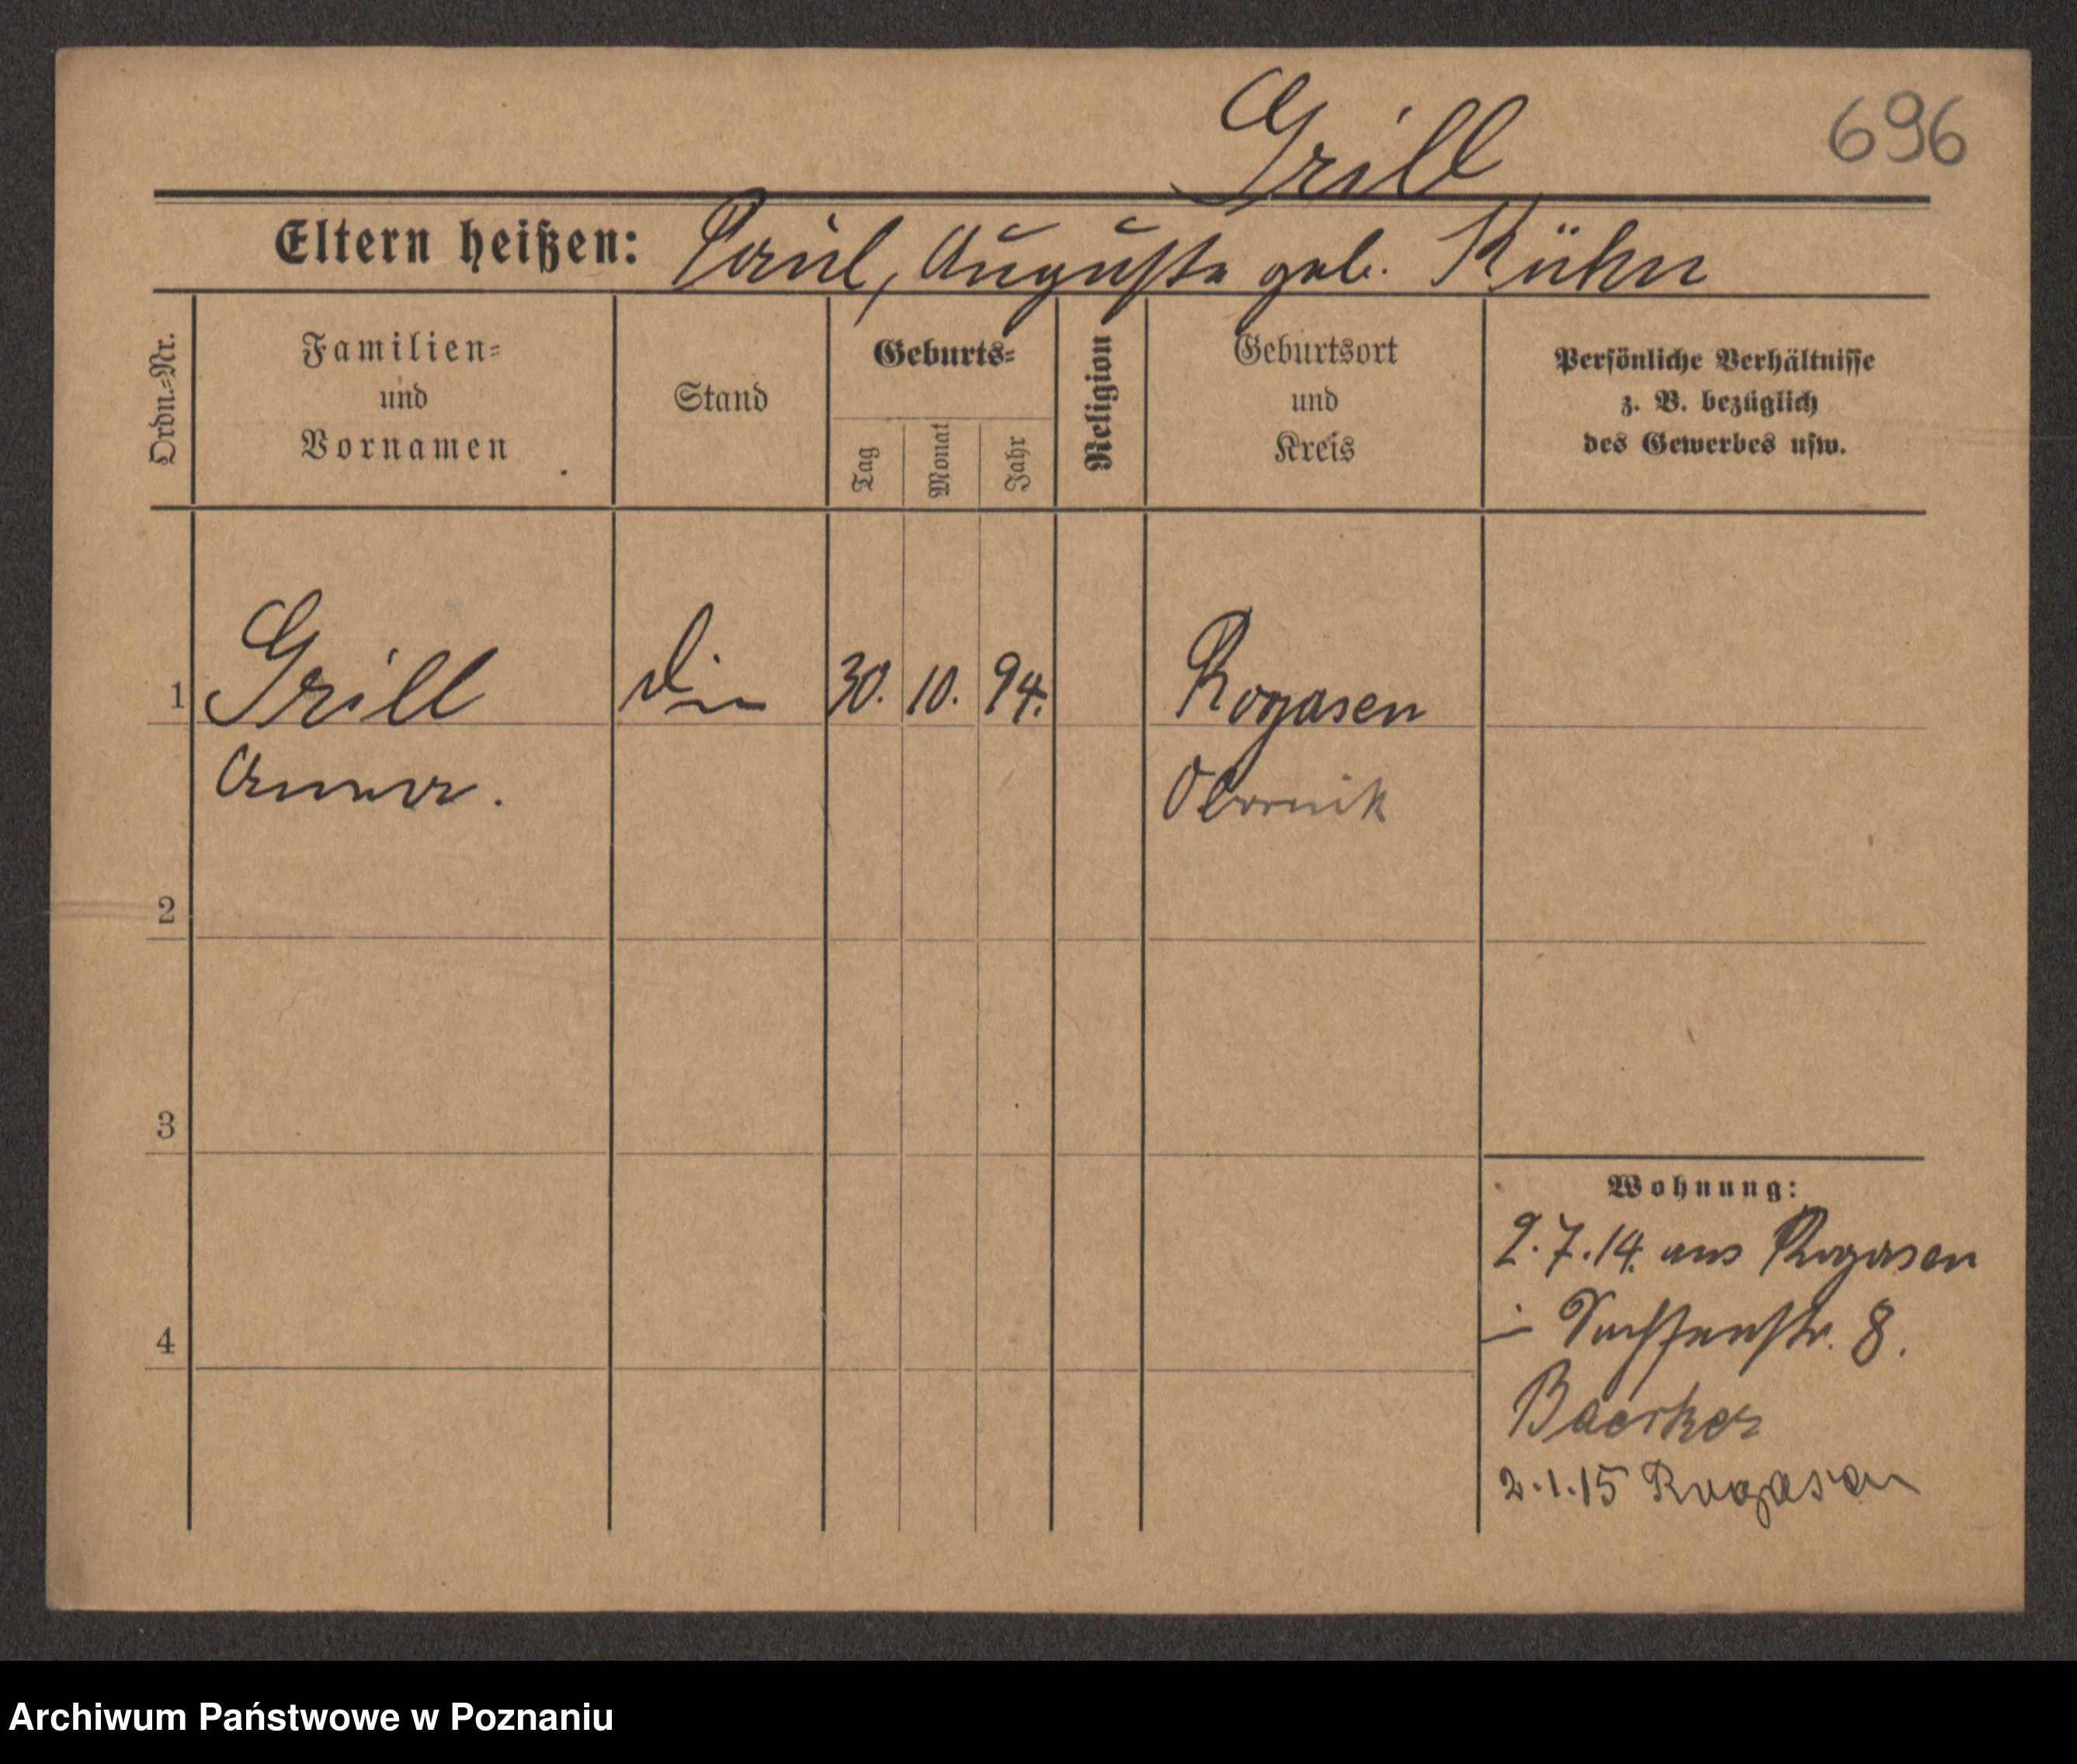 Grill
696
Eltern heißen: Paul, Auguste geb. Kühn
Ordn.=Nr.
Familien=
und
Vornamen
Stand
Geburts=
Tag
Monat
Jahr
Religion
Geburtsort
und
Kreis
Persönliche Verhältnisse
z. B. bezüglich
des Gewerbes usw.
1 Grill 30. 10. 94. Rogasen
Anna. Obornik
2
3
4
Wohnung:
2.7.14. aus Rogasen
Sachsenstr. 8.
2.1.15 Rogasen
Archiwum Państwowe w Poznaniu